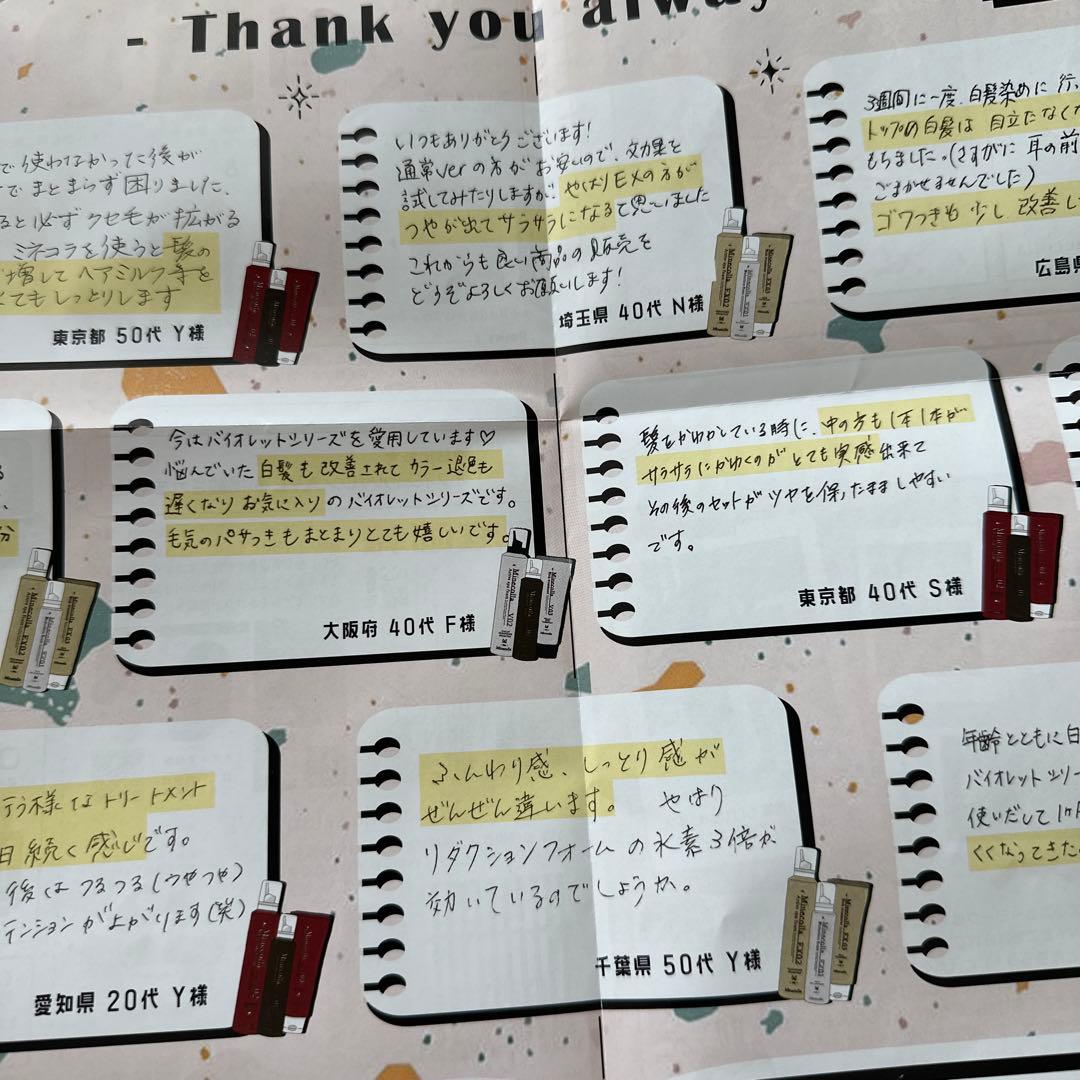 - Thank you alway
で使わなかった後が
でまとまらず困りました、
ると必ずクセ毛が拡がる
ミネコラを使うと髪の
増してヘアミルク等を
てもしっとりします
東京都 50代 Y様
いつもありがとうございます!
通常verの方がお安いので、効果を
試してみたりしますが、やはりEXの方が
つやが出てサラサラになると思いました
これからも良い商品の販売を
どうぞよろしくお願いします!
埼玉県 40代 N様
3週間に一度、白髪染めに行
トップの白髪は目立たなくな
もちました。(さすがに耳の前
ごまかせませんでした)
ゴワつきも少し改善し
広島県
今はバイオレットシリーズを愛用しています♡
悩んでいた白髪も改善されてカラー退色も
遅くなりお気に入りのバイオレットシリーズです。
毛気のパサつきもまとまりとても嬉しいです。
大阪府 40代 F様
髪をかわかしている時に、中の方も1本1本が
サラサラにかわくのがとても実感出来て
その後のセットがツヤを保ったまましやすい
です。
東京都 40代 S様
行う様なトリートメント
日続く感じです。
後はつるつる(つやつや)
テンションが上がります(笑)
愛知県 20代 Y様
ふんわり感、しっとり感が
ぜんぜん違います。 やはり
リダクションフォームの水素3倍が
効いているのでしょうか。
千葉県 50代 Y様
年齢とともに白
バイオレットシリー
使いだして1ヶ
くくなってきた。